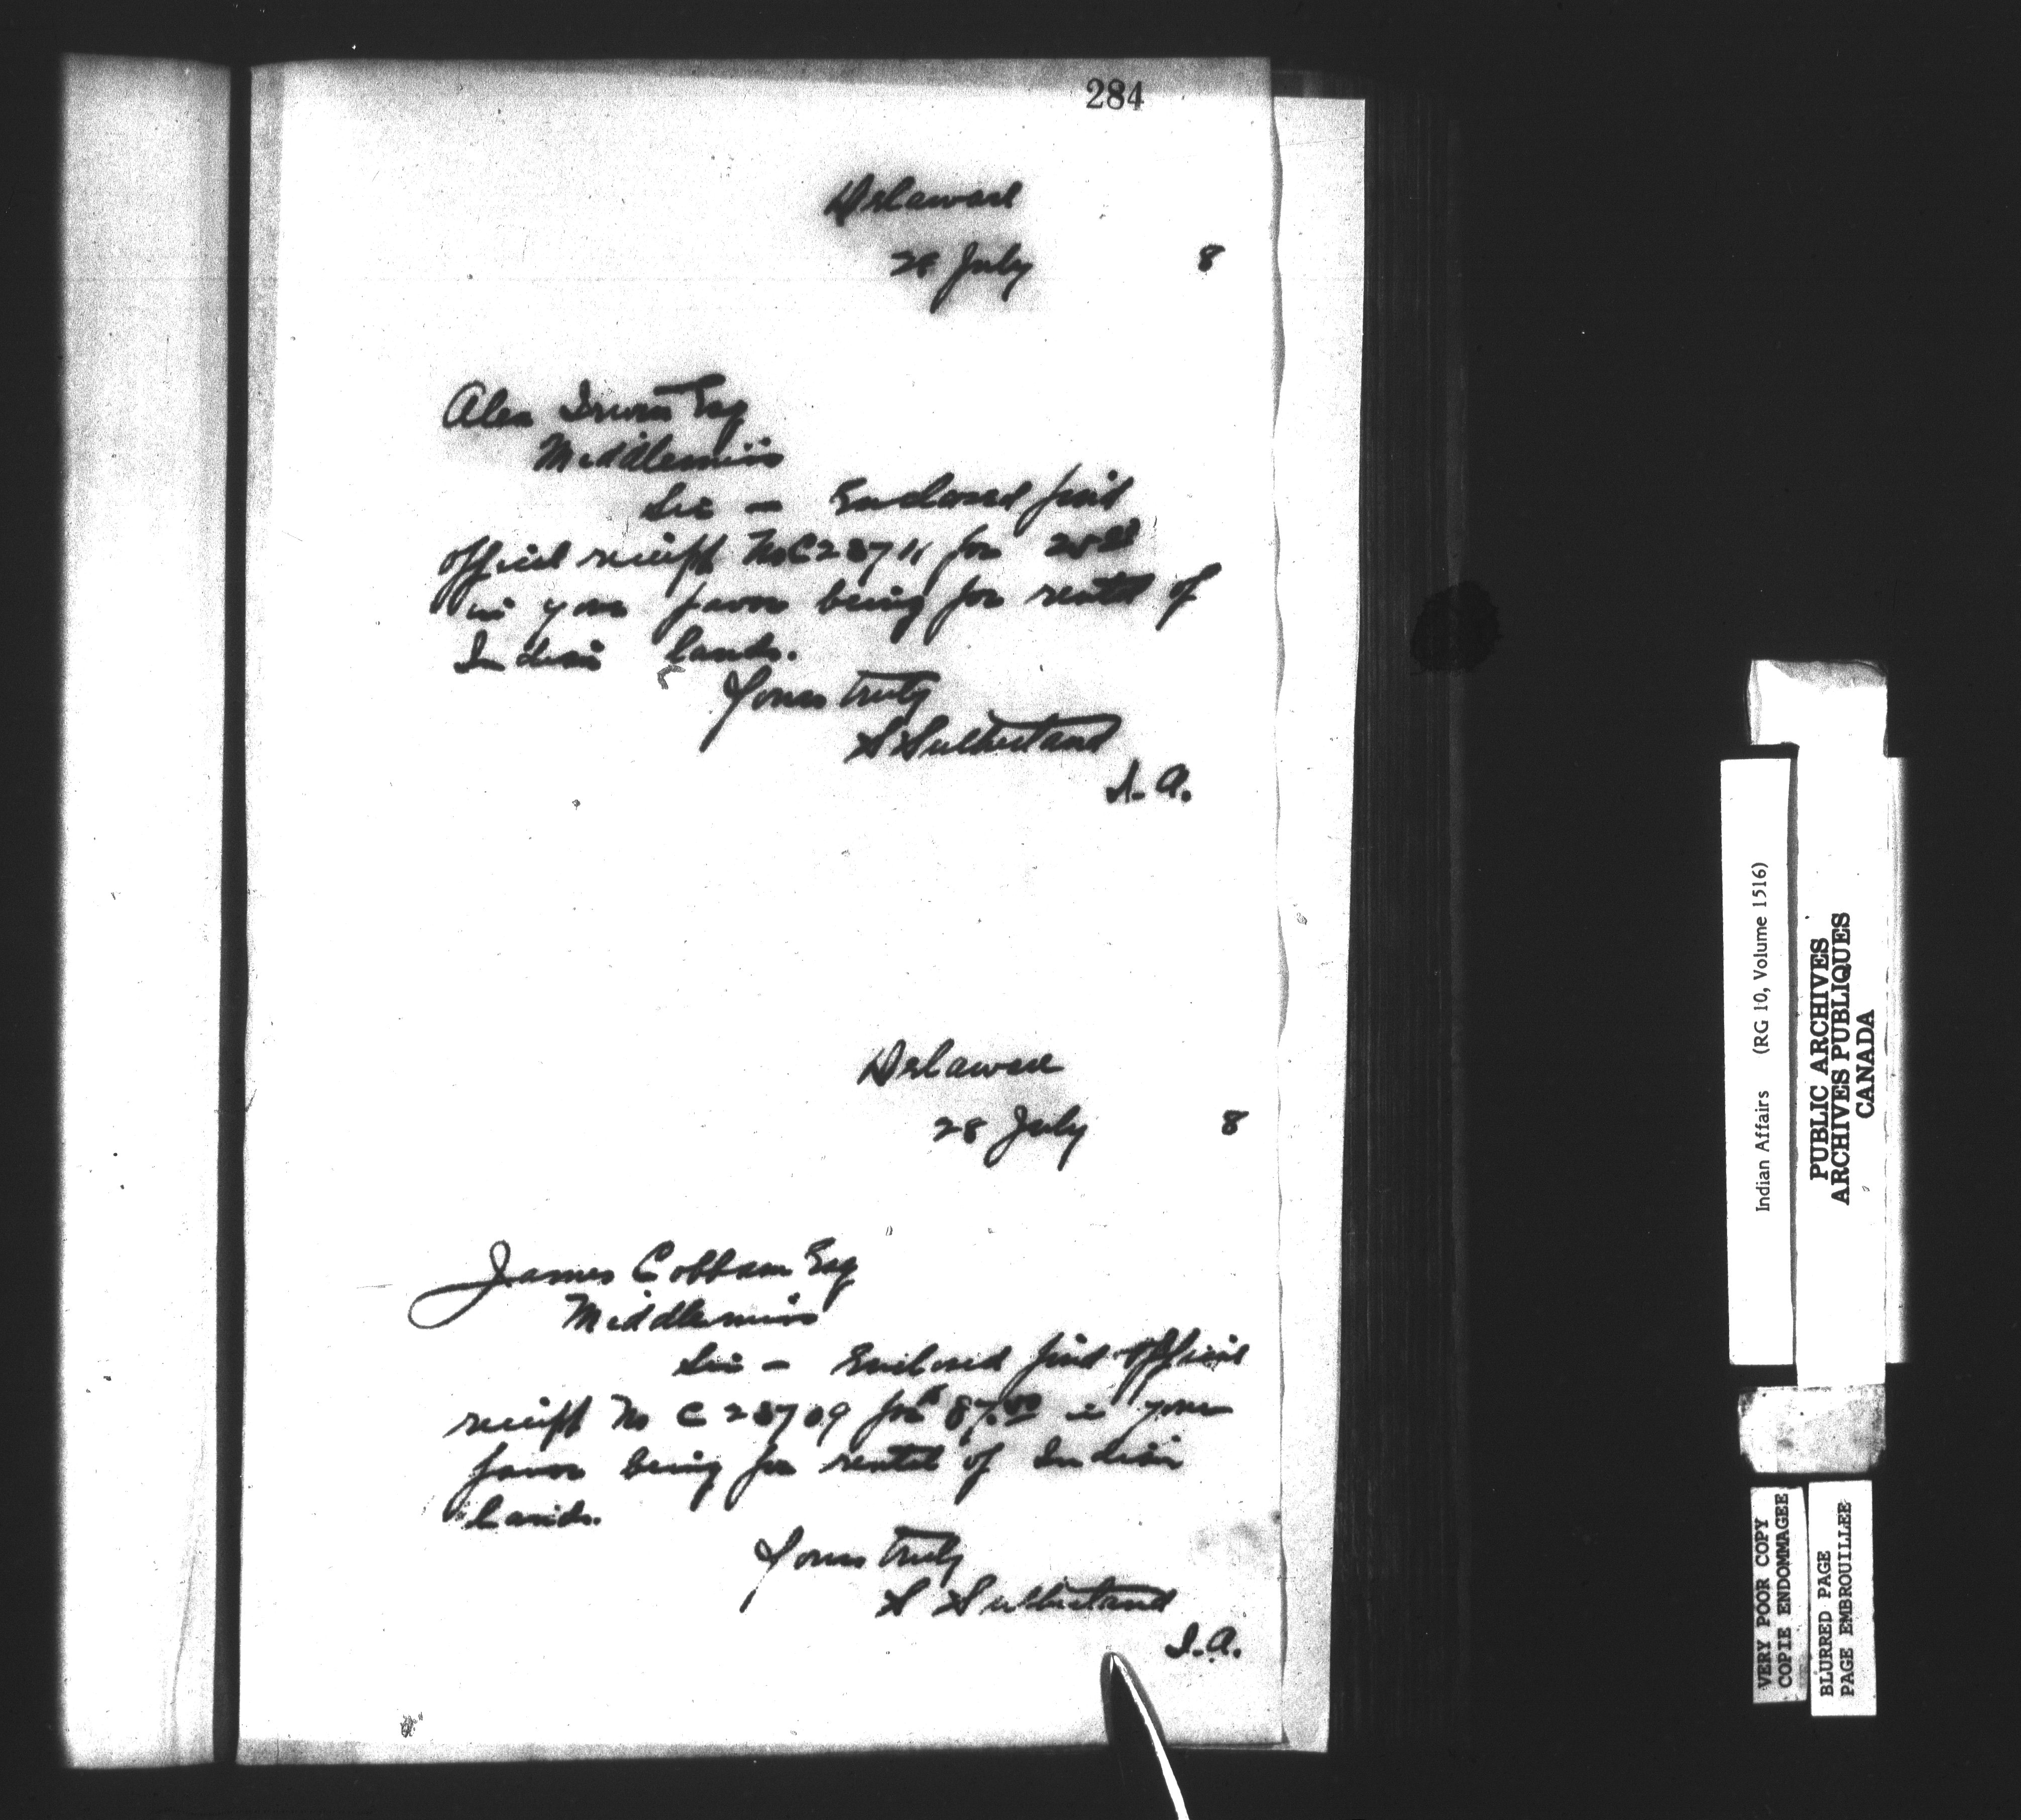 284
Delaware
28 July 8
Alex Irwin Esq
Middlemiss
Sir - Enclosed find
official receipt No C28711 for
in your favor being for rental of
Indian lands.
Yours truly
S Sutherland
I. A.
Delaware
28 July 8
James Cobban Esq
Middlemiss
Sir - Enclosed find official
receipt No C 28709 for $87.50 in your
favor being for rental of Indian
lands.
Yours truly
S Sutherland
I. A.
Indian Affairs (RG 10, Volume 1516)
PUBLIC ARCHIVES
ARCHIVES PUBLIQUES
CANADA
VERY POOR COPY
COPIE ENDOMMAGEE
BLURRED PAGE
PAGE EMBROUILLEE